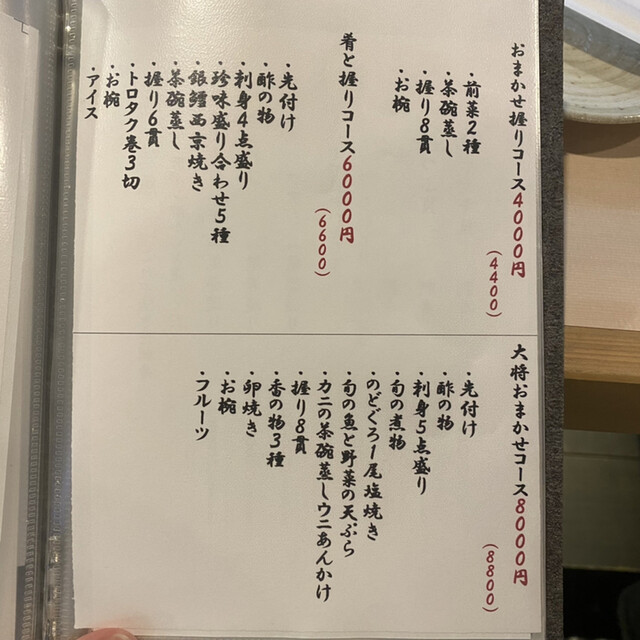 おまかせ握りコース4000円
(4400)
・前菜2種
・茶碗蒸し
・握り8貫
・お椀
肴と握りコース6000円
(6600)
・先付け
・酢の物
・刺身4点盛り
・珍味盛り合わせ5種
・銀鱈西京焼き
・茶碗蒸し
・握り6貫
・トロタク巻3切
・お椀
・アイス
大将おまかせコース8000円
(8800)
・先付け
・酢の物
・刺身5点盛り
・旬の煮物
・のどぐろ1尾塩焼き
・旬の魚と野菜の天ぷら
・カニの茶碗蒸しウニあんかけ
・握り8貫
・香の物3種
・卵焼き
・お椀
・フルーツ